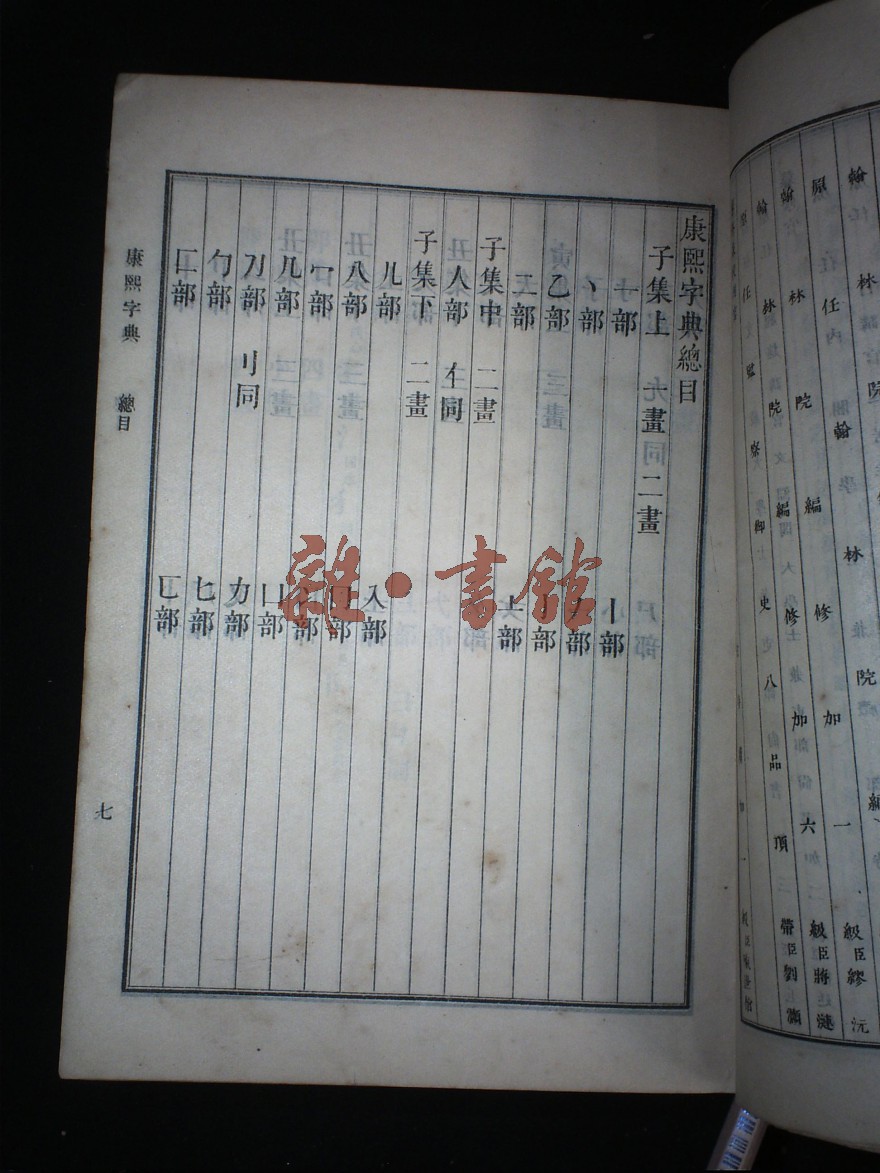 翰林院
原任翰林院編
翰林院編修加一級臣繆沅
翰林院編修加六級臣蔣漣
任監察御史八品頂帶臣劉灝
康熙字典總目
子集上 尢畫同二畫
一部 丨部
丶部
乙部
二部 亠部
子集中 二畫
人部 亻同
子集下 二畫
儿部 入部
八部
冖部
几部 凵部
刀部 刂同 力部
勹部 匕部
匚部 匸部
康熙字典 總目
七
雜·書館